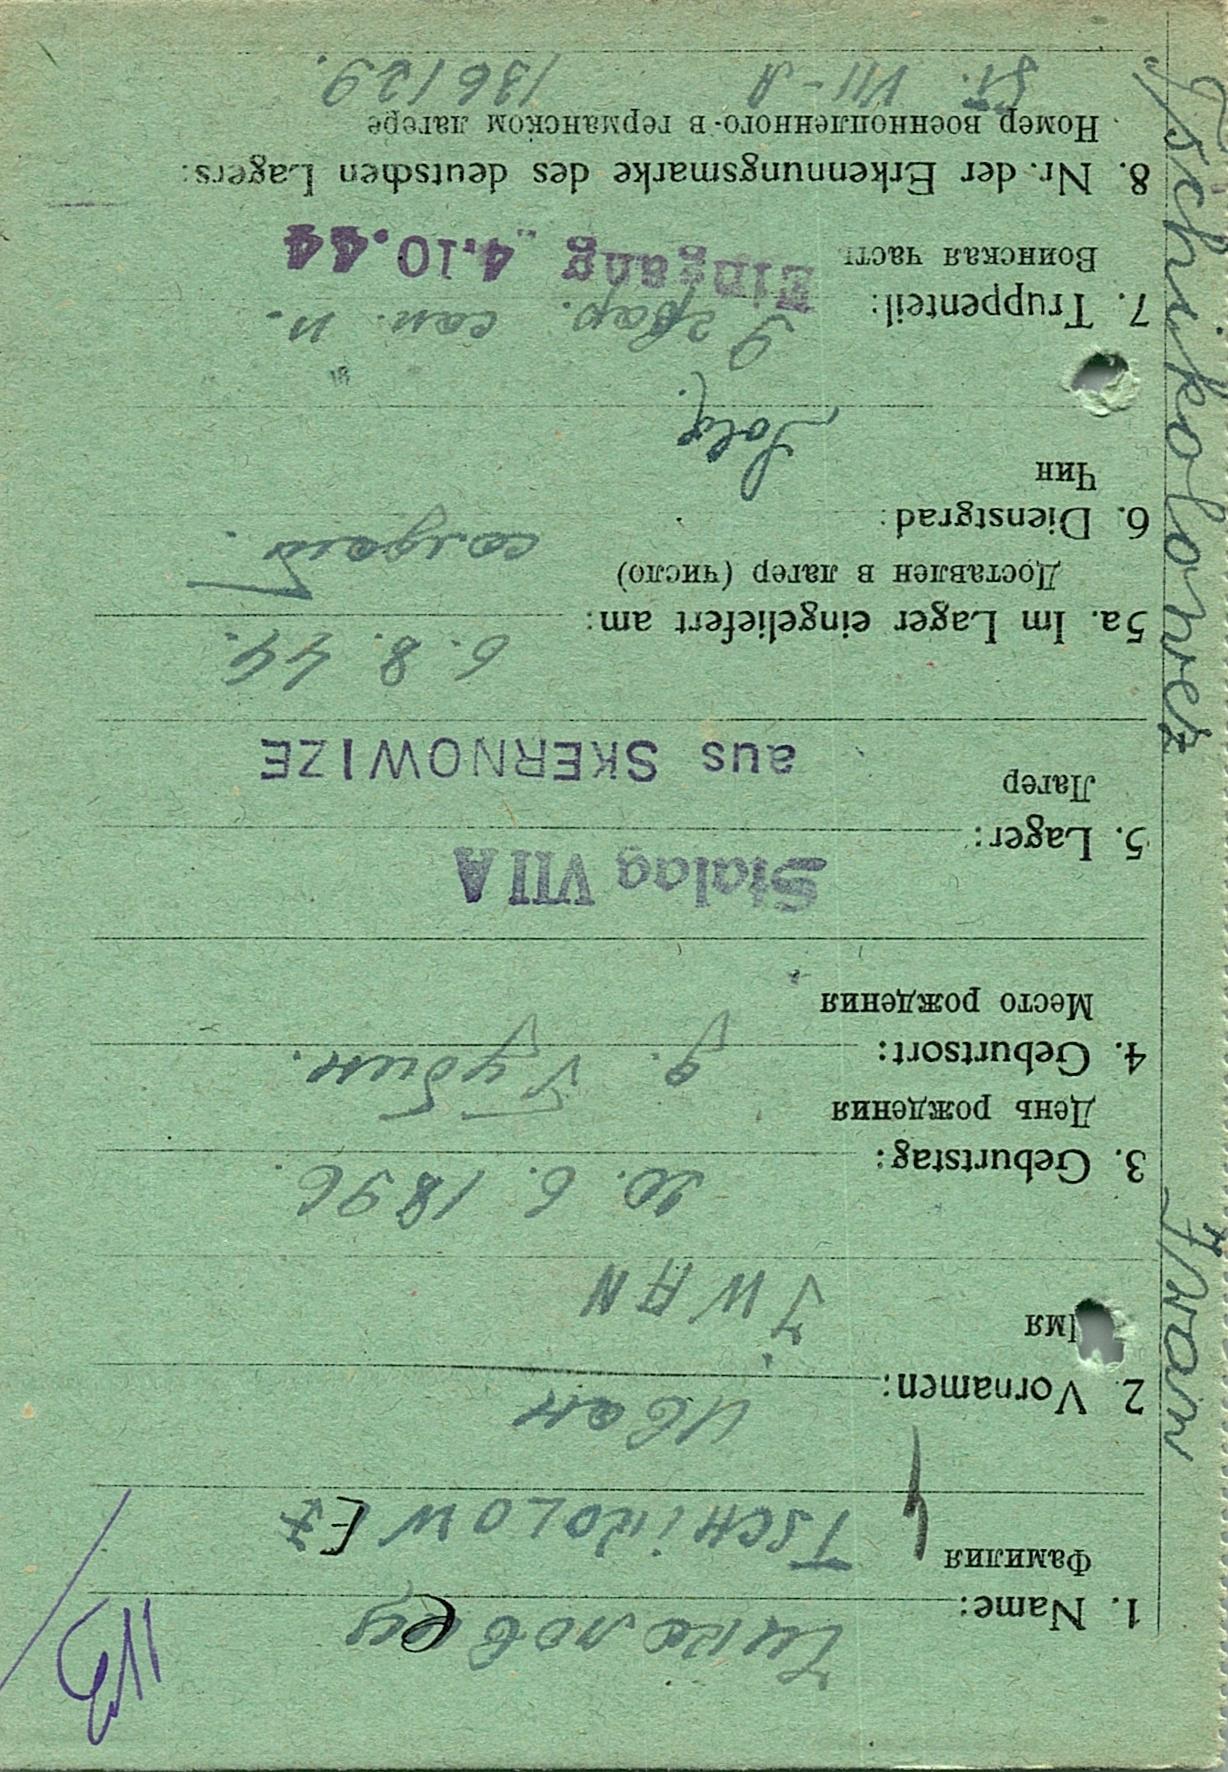 1. Name: Чиколовец
Фамилия TSCHIKOLOWEZ
2. Vornamen: Иван
Имя IWAN
3. Geburtstag: 20. 6. 1896.
День рождения
4. Geburtsort: д. Губин.
Место рождения
Stalag VII A
5. Lager:
Лагерь
aus SKERNOWIZE
5a. Im Lager eingeliefert am: 6. 8. 44.
Доставлен в лагер (число)
6. Dienstgrad: солдат.
Чин
Sold.
7. Truppenteil: 9 гвар. сап. п.
Воинская часть
Eingang 4.10.44
8. Nr. der Erkennungsmarke des deutschen Lagers:
Номер военнопленного в германском лагере
St. VII-A 136129.
Tschikolowez Iwan